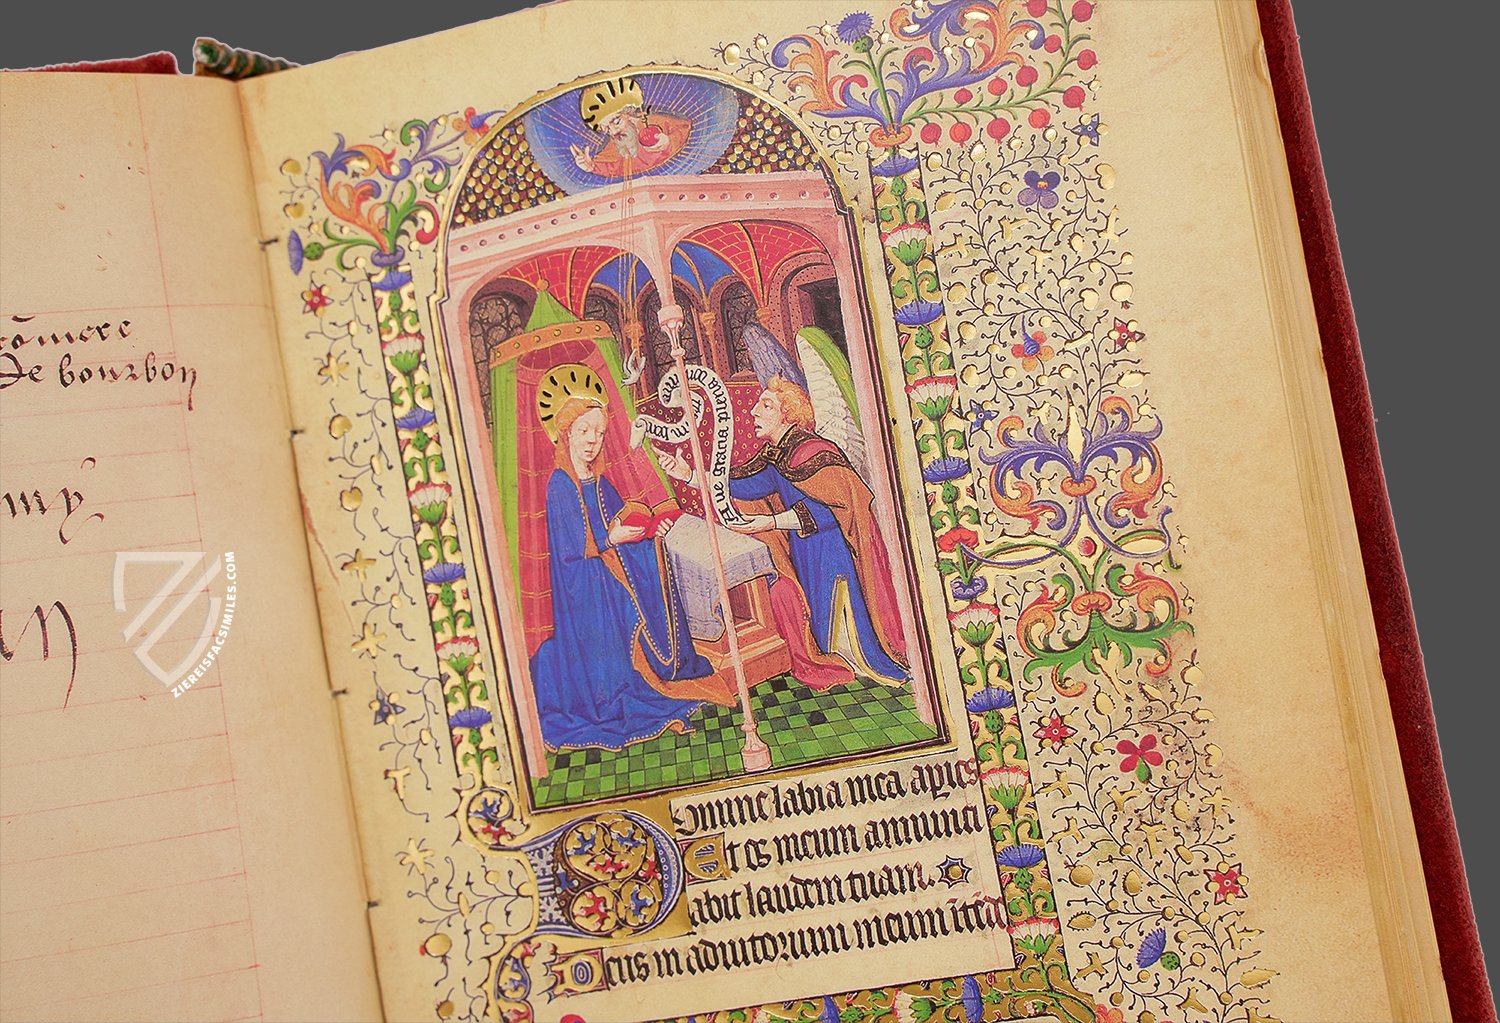 cōmere
de bourbon
my
ZIEREISFACSIMILES.COM
Aue gracia plena dominus
Domine labia mea apies
Et os meum annunci
abit laudem tuam.
Deus in adiutorium meum